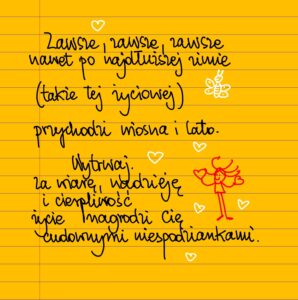 Zawsze, zawsze, zawsze
nawet po najdłuższej zimie
(także tej życiowej)
przychodzi wiosna i lato.
Wytrwaj.
Za wiarę, nadzieję
i cierpliwość
życie nagrodzi Cię
cudownymi niespodziankami.